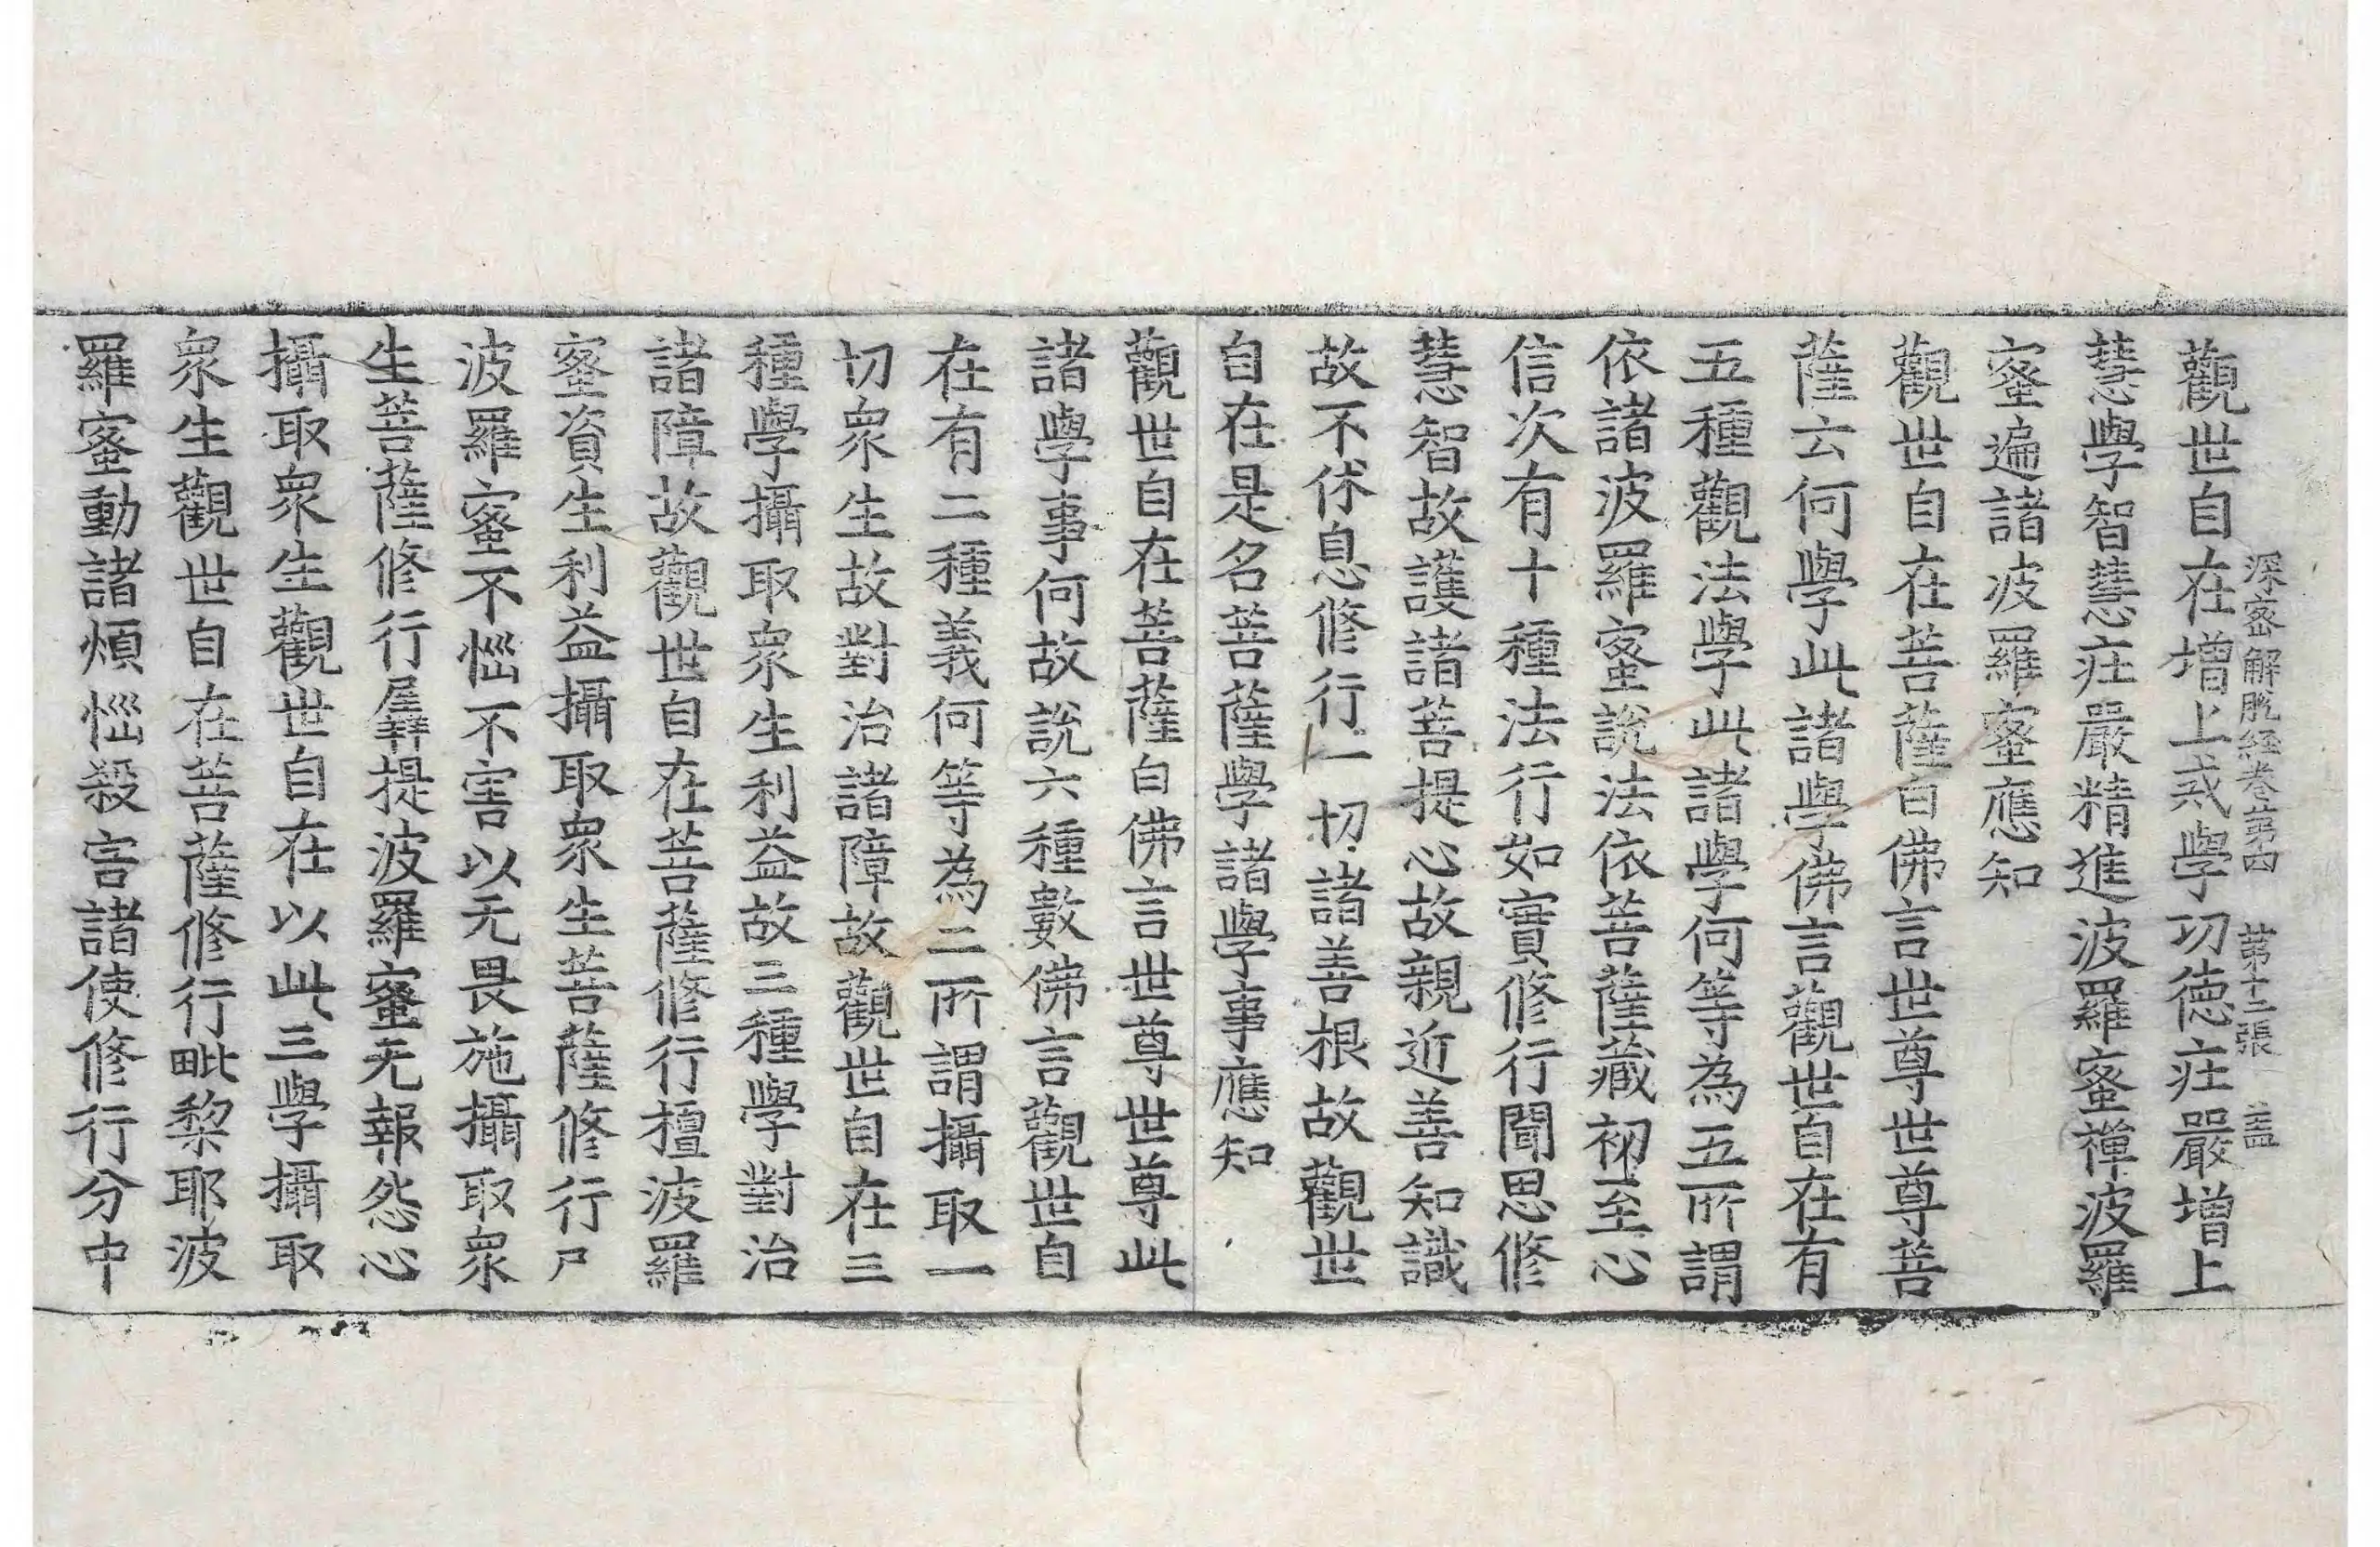 深密解脫経卷苐四　苐十二張　盖
觀世自在增上戒學功德疰嚴增上
慧學智慧疰嚴精進波羅蜜禪波羅
蜜遍諸波羅蜜應知
觀世自在菩薩白佛言世尊世尊菩
薩云何學此諸學佛言觀世自在有
五種觀法學此諸學何等為五所謂
依諸波羅蜜說法依菩薩藏初至心
信次有十種法行如實修行聞思修
慧智故護諸菩提心故親近善知識
故不休息修行一切諸善根故觀世
自在是名菩薩學諸學事應知
觀世自在菩薩白佛言世尊世尊此
諸學事何故說六種數佛言觀世自
在有二種義何等為二所謂攝取一
切衆生故對治諸障故觀世自在三
種學攝取衆生利益故三種學對治
諸障故觀世自在菩薩修行檀波羅
蜜資生利益攝取衆生菩薩修行尸
波羅蜜不惱不害以无畏施攝取衆
生菩薩修行羼提波羅蜜无報怨心
攝取衆生觀世自在以此三學攝取
衆生觀世自在菩薩修行毗梨耶波
羅蜜動諸煩惱殺害諸使修行分中